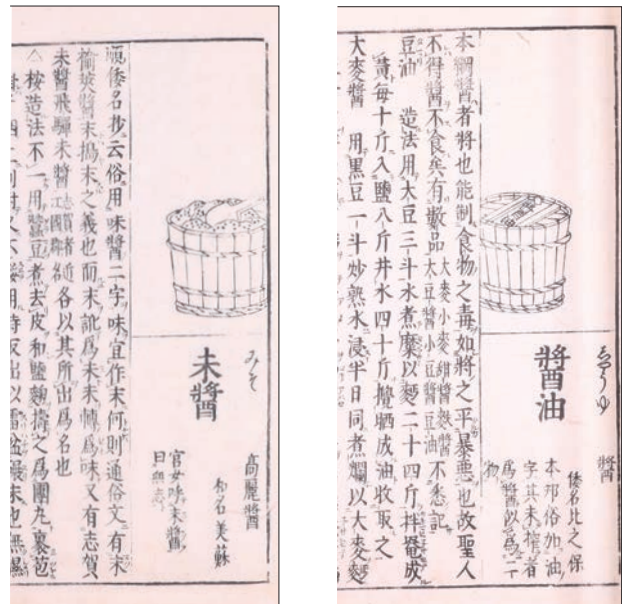 醬
しやうゆ
醬油
倭名比之保
本邦俗加油
字其未搾者
爲醬似爲二
物
本綱醬者將也能制食物之毒如將之平暴悪也故聖人
不得醬不食矣有數品大麥小麥甜醬麩醬大豆醬小豆醬豆油不悉記
豆油 造法用大豆三斗水煮糜以麪二十四斤拌罨成
黃每十斤入鹽八斤井水四十斤攪晒成油收取之
大麥醬 用黑豆一斗炒熟水浸半日同煮爛以大麥麪
みそ
未醬
高麗醬
和名美蘇
官女呼未醬
順倭名抄云俗用味醬二字味宜作末何則通俗文有末
榆莢醬末搗末之義也而末訛爲未未轉爲味又有志賀
未醬飛驒未醬志賀者近江國郡名各以其所出爲名也
△按造法不一用豆煮去皮和鹽麴擣之爲團丸裹苞